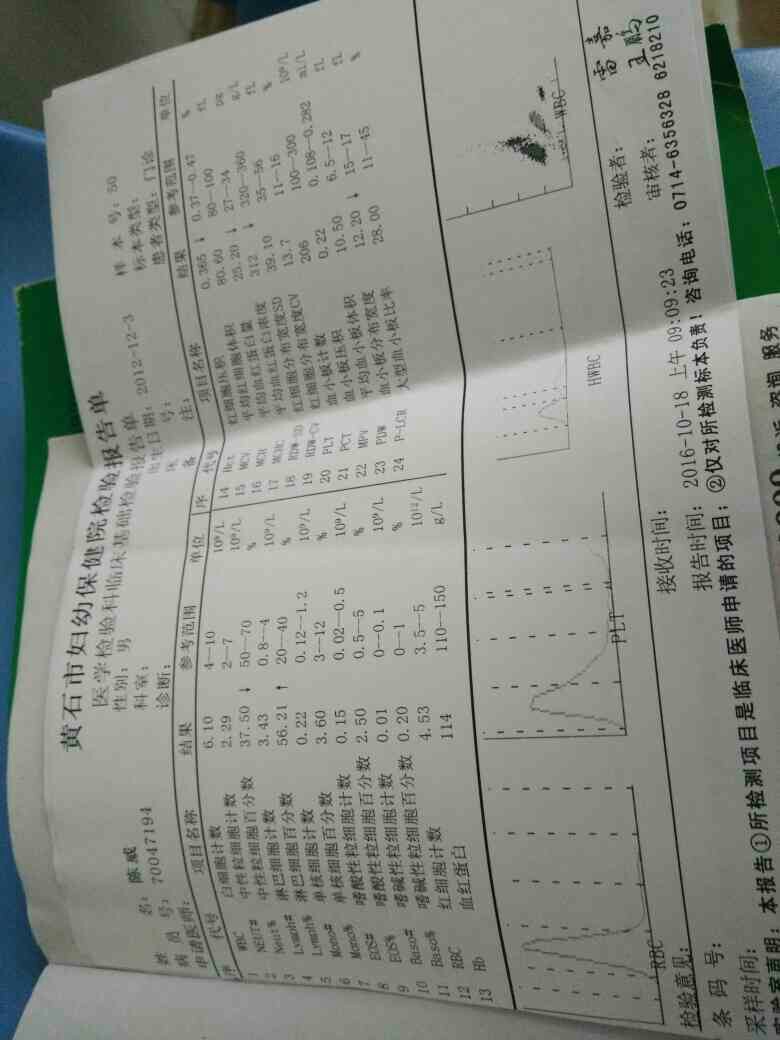 黄石市妇幼保健院检验报告单
医学检验科临床基础检验报告单
姓 名: 陈威 性别: 男 出生日期: 2012-12-3 样 本 号: 50
病 员 号: 70047194 科室: 床 号: 标本类型:
申请医师: 诊断: 备 注: 患者类型: 门诊
序 代号 项目名称 结果 参考范围 单位 序 代号 项目名称 结果 参考范围 单位
1 WBC 白细胞计数 6.10 4--10 10⁹/L 14 Hct 红细胞压积 0.365 ↓ 0.37--0.47 %
2 NEUT# 中性粒细胞计数 2.29 2--7 10⁹/L 15 MCV 平均红细胞体积 80.60 80--100 fL
3 Neut% 中性粒细胞百分数 37.50 ↓ 50--70 % 16 MCH 平均血红蛋白量 25.20 ↓ 27--34 pg
4 Lymph# 淋巴细胞计数 3.43 0.8--4 10⁹/L 17 MCHC 平均血红蛋白浓度 312 ↓ 320--360 g/L
5 Lymph% 淋巴细胞百分数 56.21 ↑ 20--40 % 18 RDW-SD 红细胞分布宽度SD 39.10 35--56 fL
6 Mono# 单核细胞计数 0.22 0.12--1.2 10⁹/L 19 RDW-CV 红细胞分布宽度CV 13.7 11--16 %
7 Mono% 单核细胞百分数 3.60 3--12 % 20 PLT 血小板计数 206 100--300 10⁹/L
8 EOS# 嗜酸性粒细胞计数 0.15 0.02--0.5 10⁹/L 21 PCT 血小板压积 0.22 0.108--0.282 ml/L
9 EOS% 嗜酸性粒细胞百分数 2.50 0.5--5 % 22 MPV 平均血小板体积 10.50 6.5--12 fL
10 Baso# 嗜碱性粒细胞计数 0.01 0--0.1 10⁹/L 23 PDW 血小板分布宽度 12.20 ↓ 15--17 fL
11 Baso% 嗜碱性粒细胞百分数 0.20 0--1 % 24 P-LCR 大型血小板比率 28.00 11--45 %
12 RBC 红细胞计数 4.53 3.5--5 10¹²/L
13 Hb 血红蛋白 114 110--150 g/L
RBC PLT HWBC WBC
检验意见:
条 码 号: 接收时间: 检验者: 雷嘉
采样时间: 报告时间: 2016-10-18 上午 09:09:23 审核者: 王鹏
实验室声明: 本报告①所检测项目是临床医师申请的项目; ②仅对所检测标本负责! 咨询电话: 0714-6356328 6218210
咨询 服务